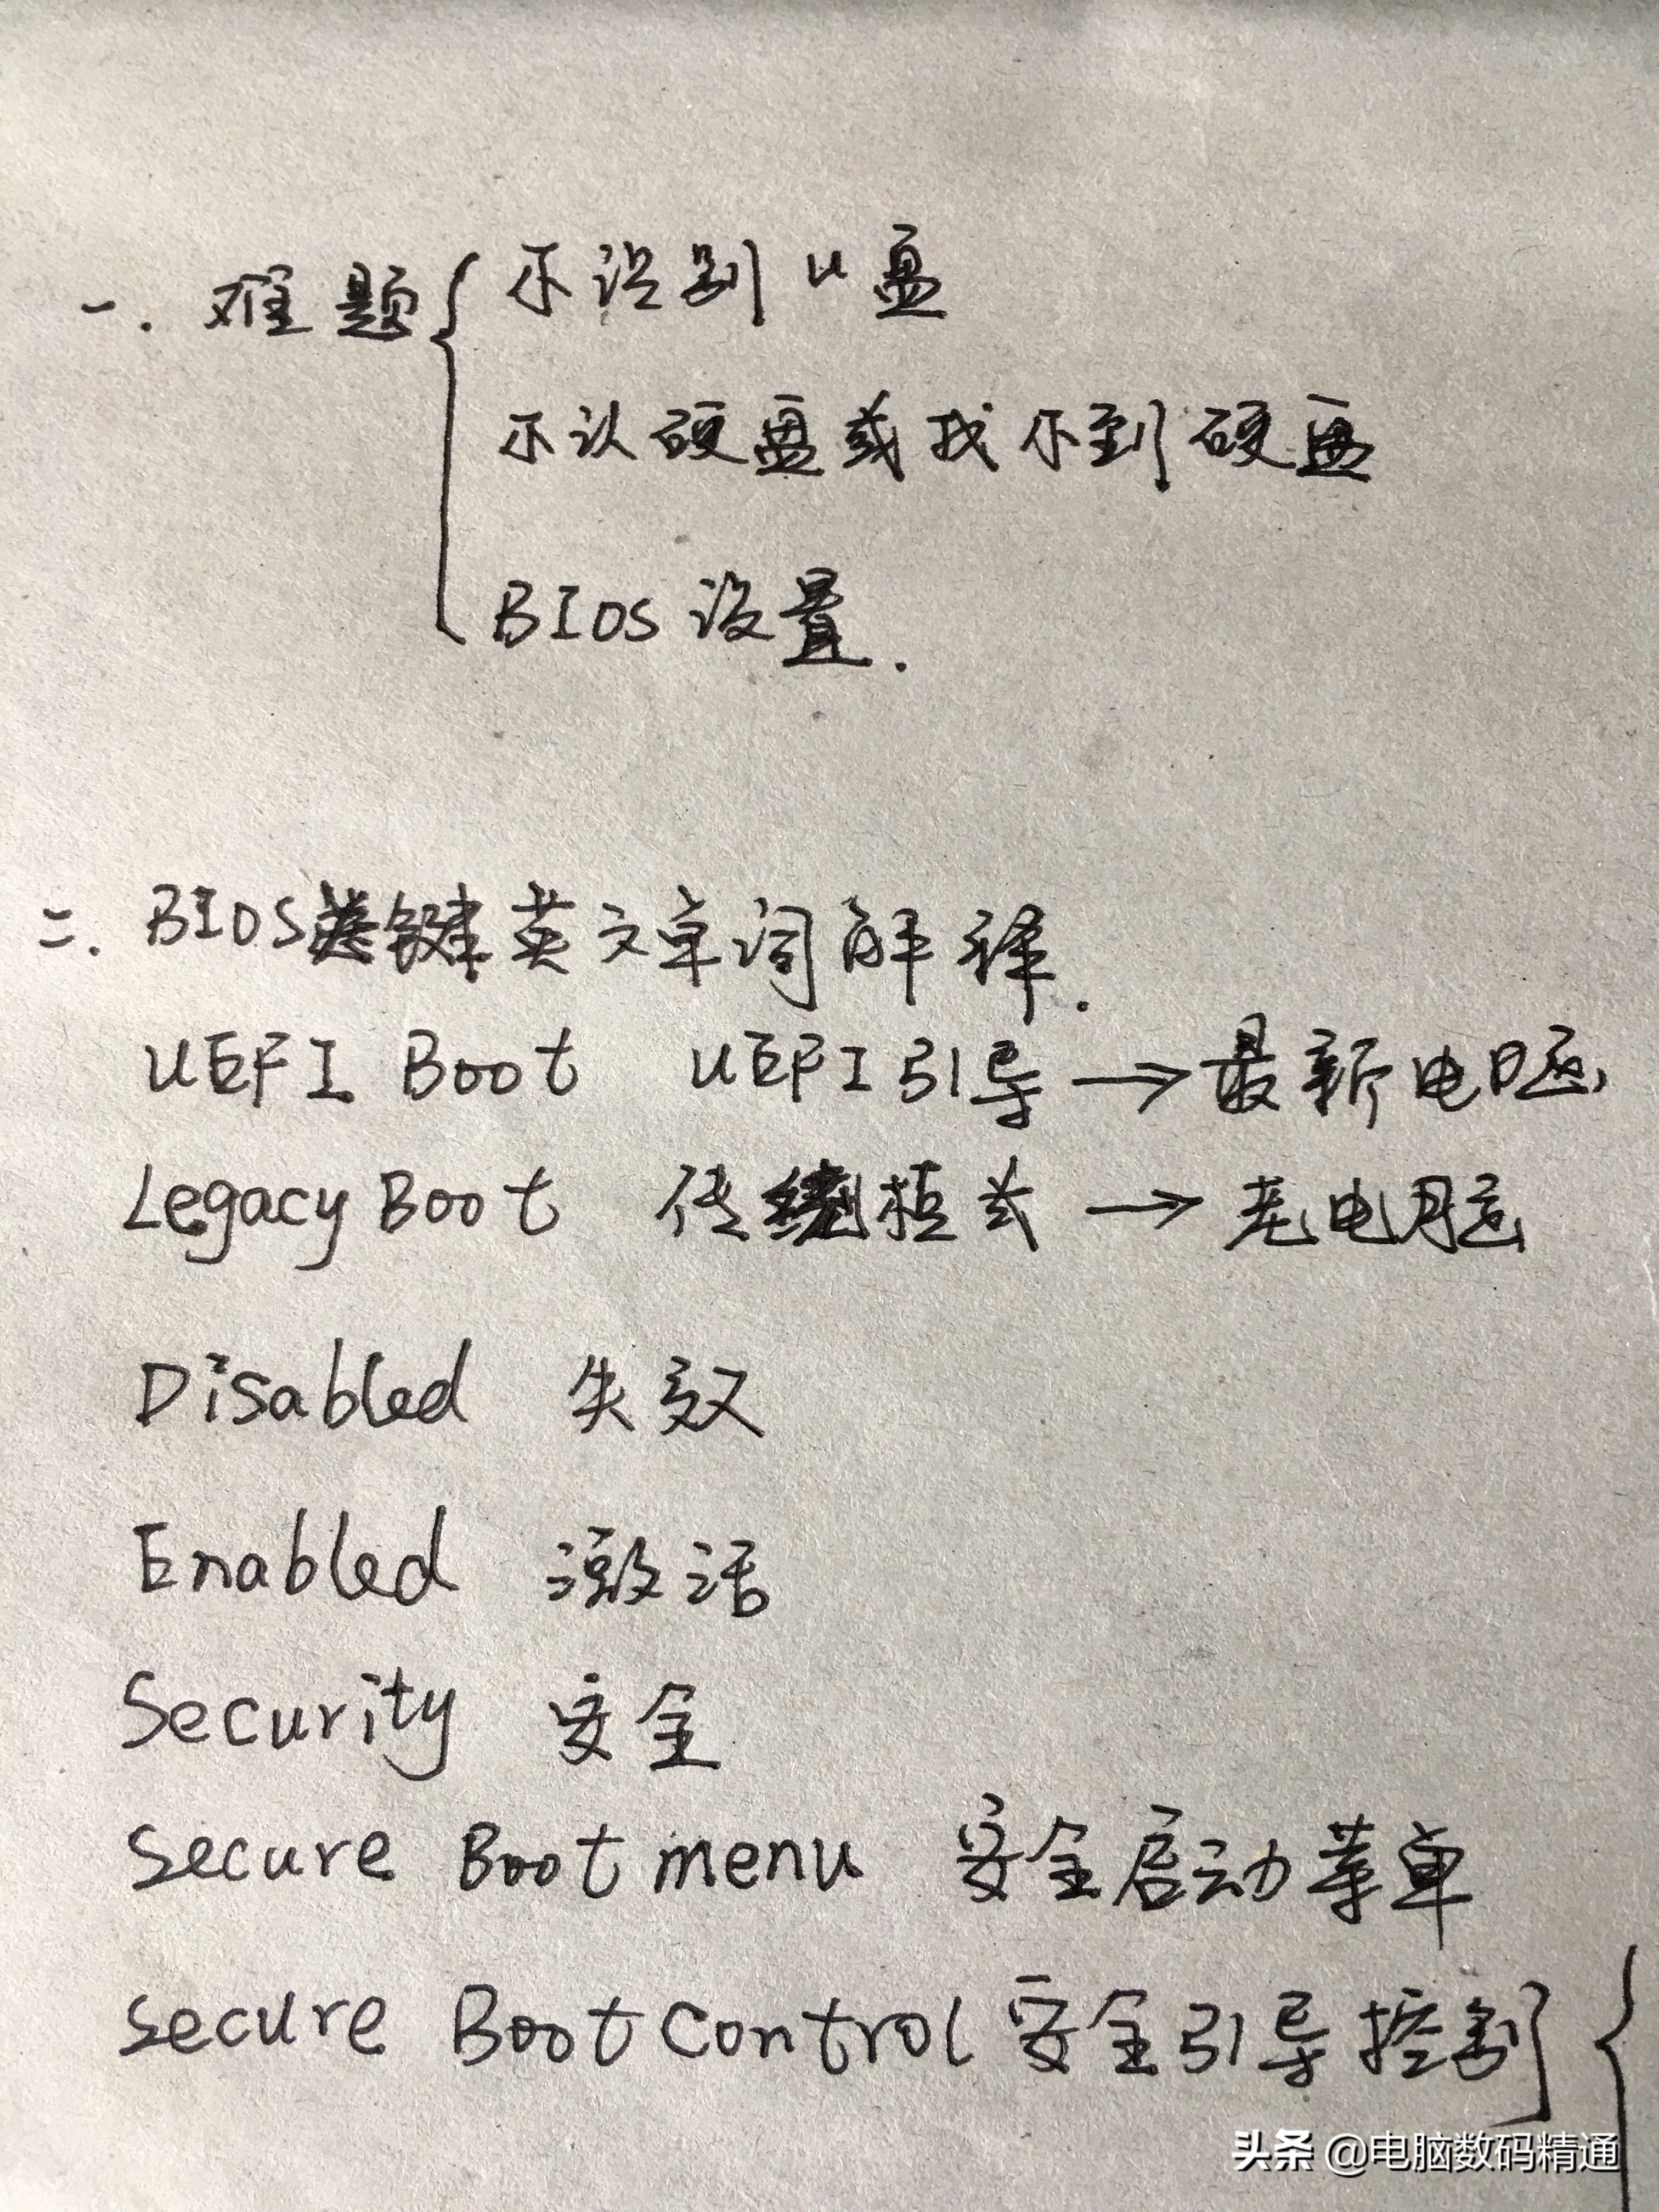 一. 难题 { 不识别U盘
不认硬盘或找不到硬盘
BIOS设置.
二. BIOS关键英文单词解释.
UEFI Boot UEFI引导→最新电脑
Legacy Boot 传统模式→老电脑
Disabled 失效
Enabled 激活
Security 安全
Secure Boot menu 安全启动菜单
Secure Boot Control 安全引导控制 {
头条 @电脑数码精通